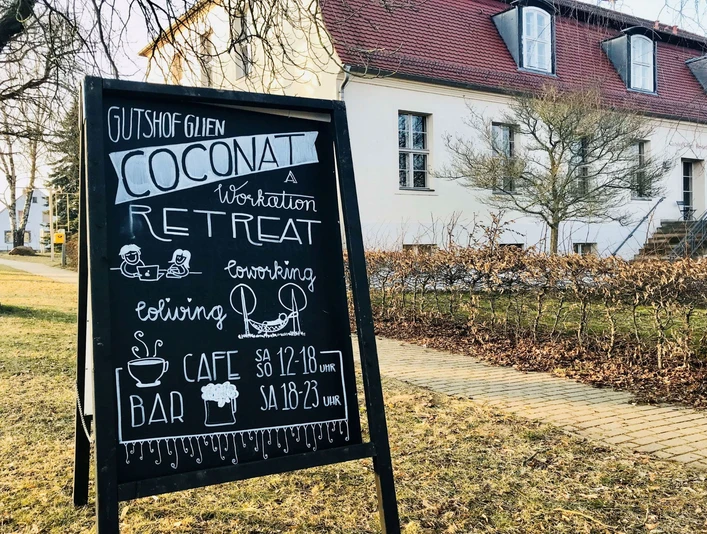 GUTSHOF GLIEN
COCONAT
A
Workation
RETREAT
Coworking
Coliving
CAFE SA SO 12-18 UHR
BAR SA 18-23 UHR